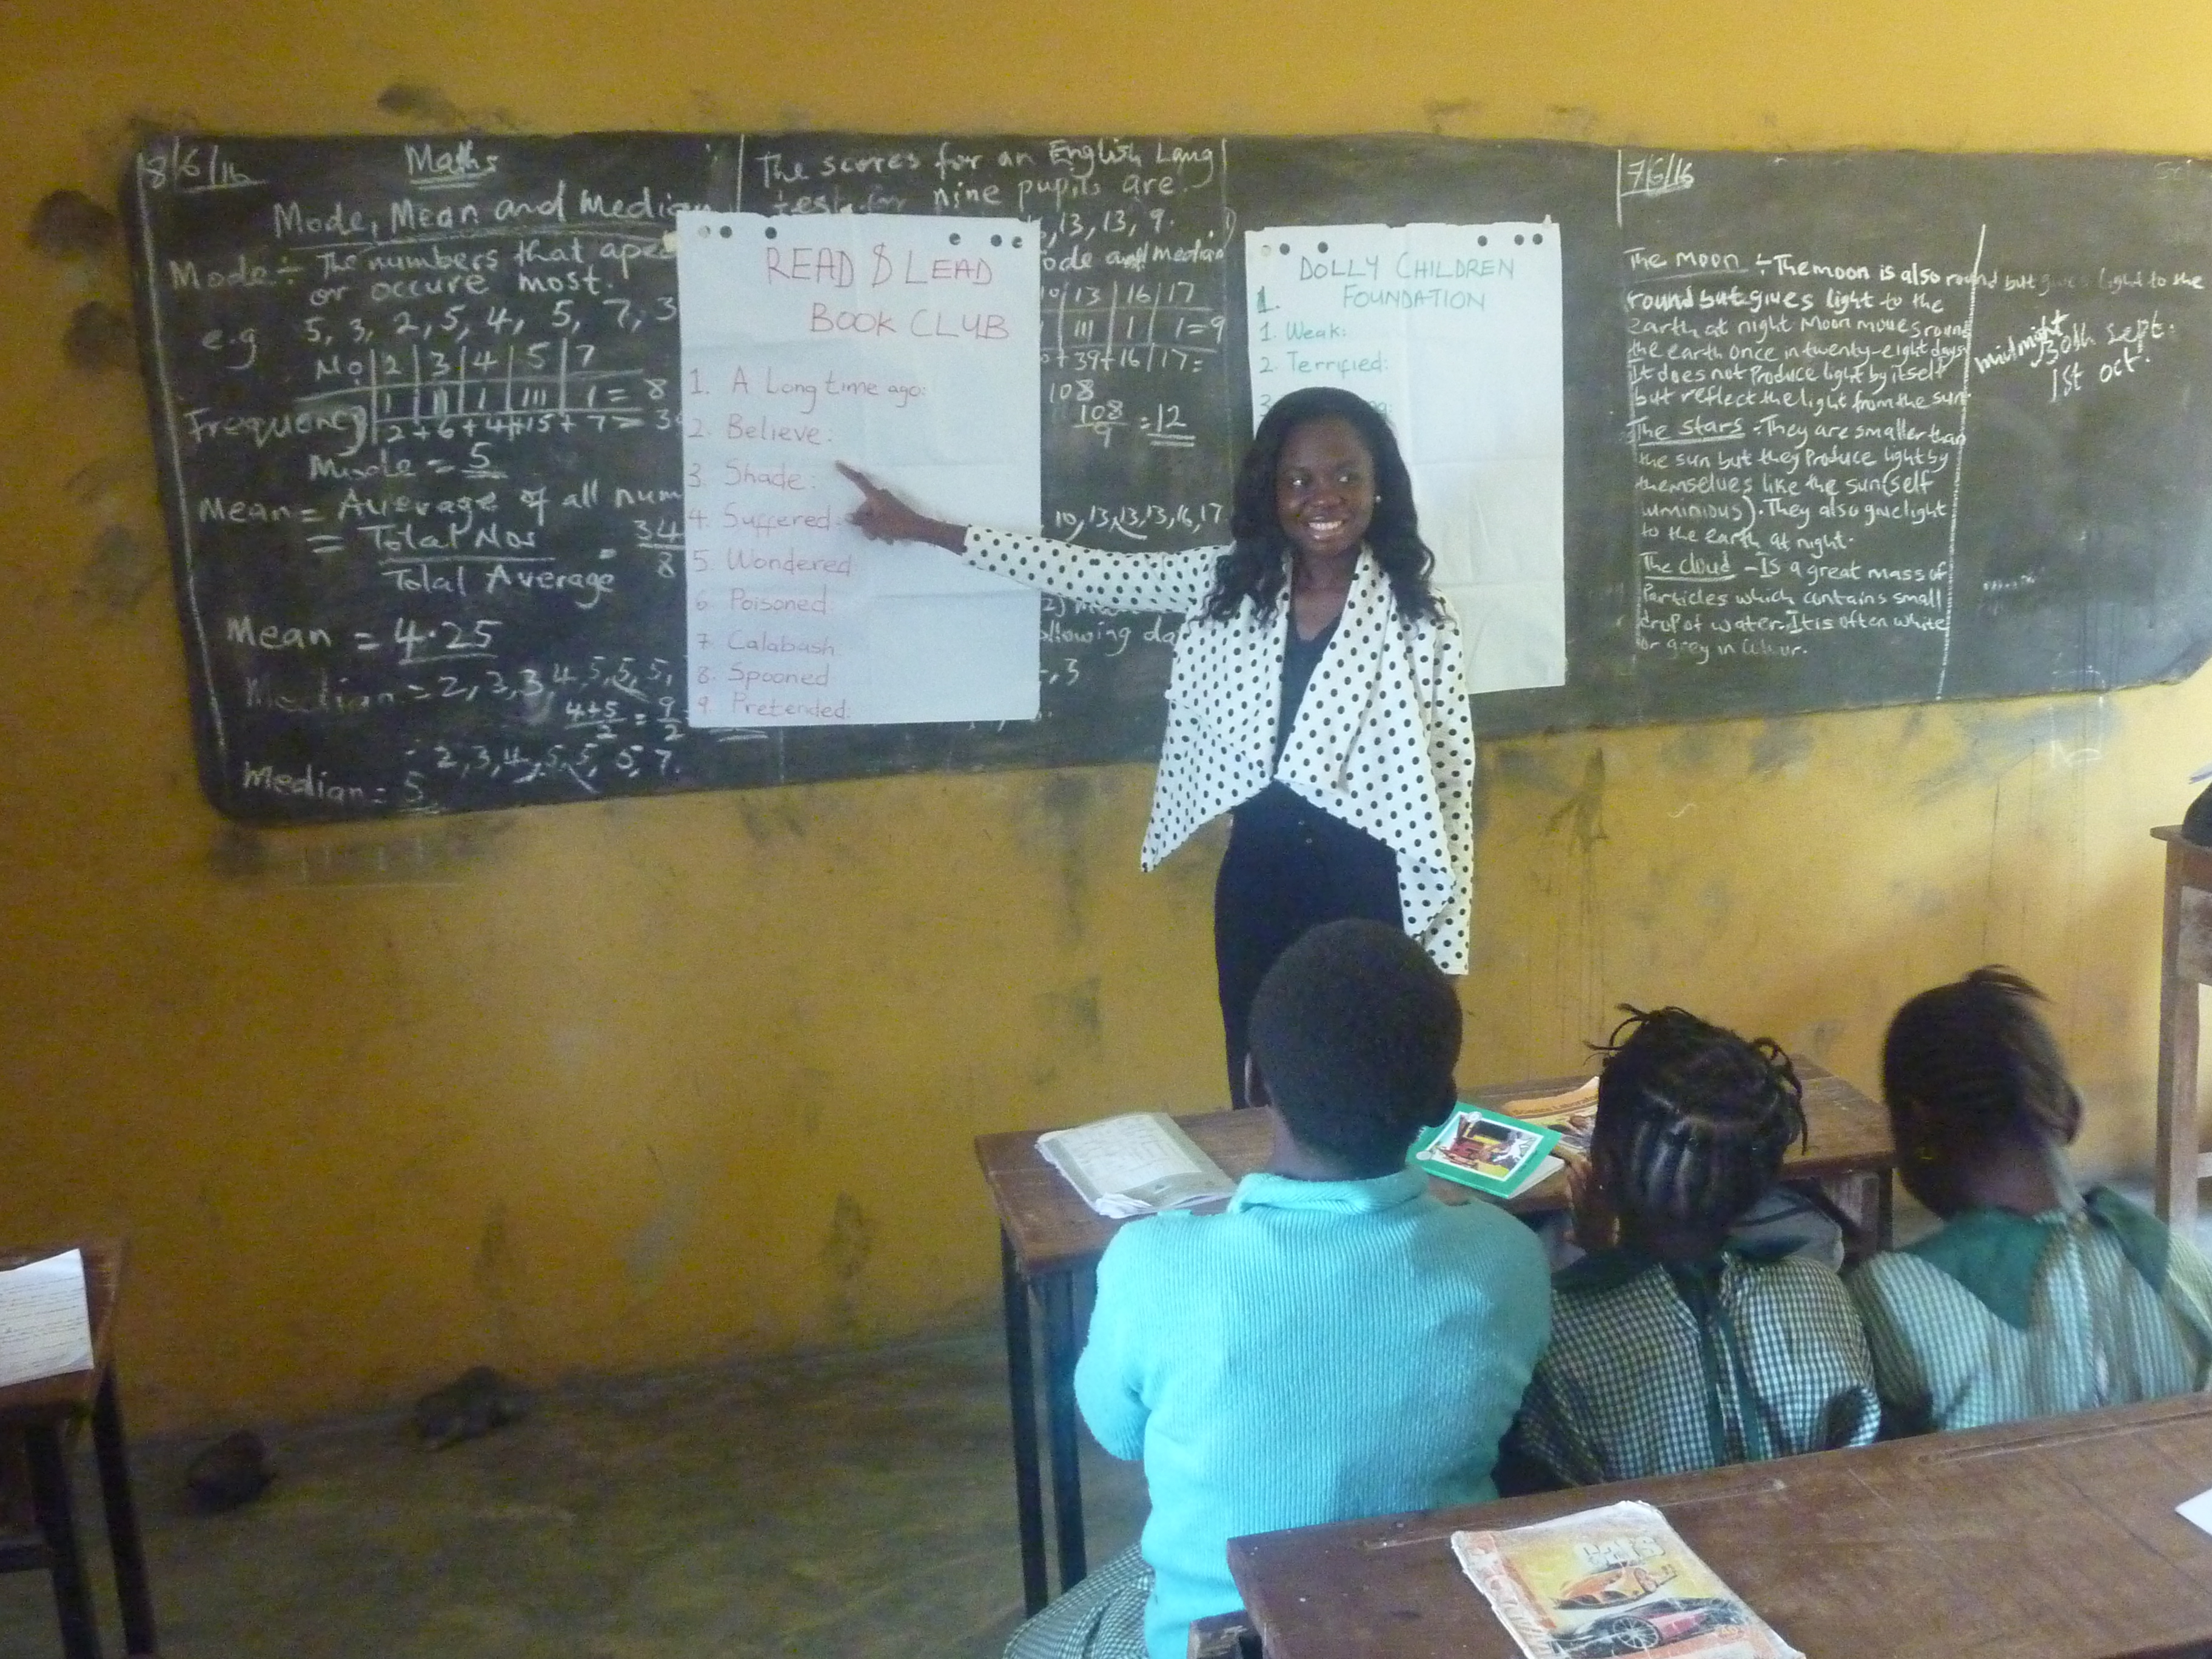 8/6/16
Maths
Mode, Mean and Median
Mode:- The numbers that apea
or occure most.
e.g 5, 3, 2, 5, 4, 5, 7, 3
No 2 3 4 5 7
Frequency 1 11 1 111 1 = 8
2+6+4+15+7= 3
Mode = 5
Mean = Average of all num
= Total Nos = 34
Total Average 8
Mean = 4.25
Median = 2, 3, 3, 4, 5, 5, 5,
4+5 = 9
2 2
2, 3, 4, 5, 5, 5, 7.
Median = 5
The scores for an English Lang
test for nine pupils are.
, 13, 13, 9.
ode and median
13 16 17
111 1 1 = 9
+39+16/17=
108
108 = 12
9
10, 13, 13, 13, 16, 17
ollowing da
, 3
READ & LEAD
BOOK CLUB
1. A Long time ago:
2. Believe:
3. Shade:
4. Suffered:
5. Wondered
6. Poisoned:
7. Calabash
8. Spooned
9. Pretended:
DOLLY CHILDREN
FOUNDATION
1.
1. Weak:
2. Terrified:
7/6/16
The Moon :- The moon is also round but gives light to the
round but gives light to the
Earth at night Moon moves round
the earth once in twenty-eight days
It does not Produce light by itself
but reflect the light from the sun.
The stars - They are smaller than
the sun but they Produce light by
themselves like the sun (self
luminious). They also give light
to the earth at night.
The cloud - Is a great mass of
Particles which contains small
drop of water. It is often white
or grey in colour.
midnight
30th Sept.
1st oct.